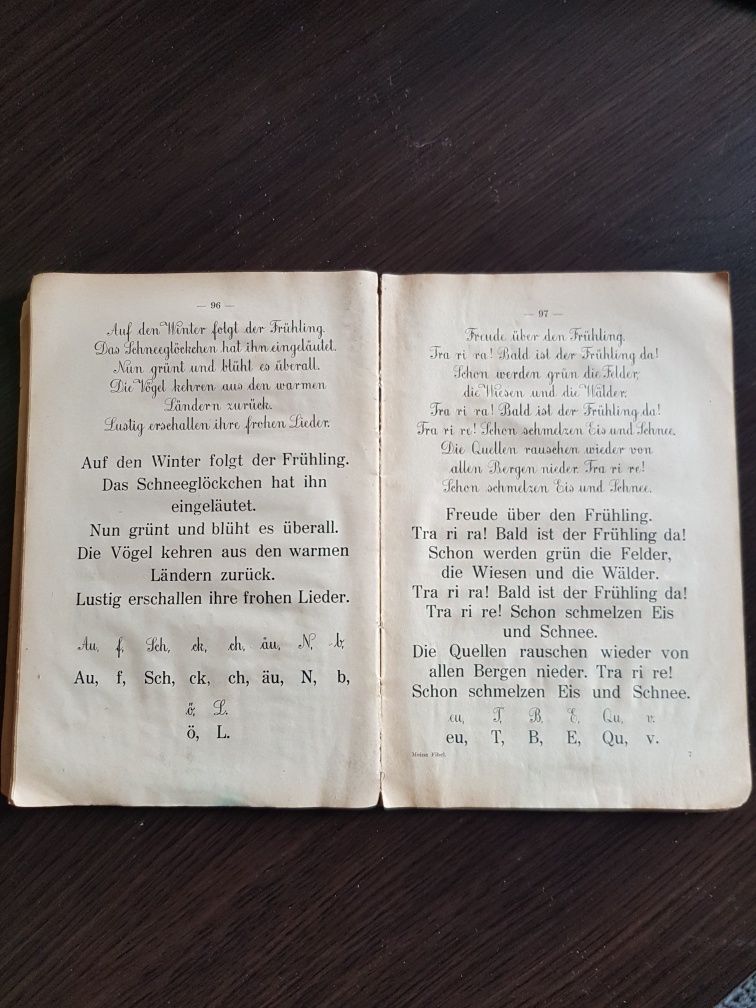 — 96 —
Auf den Winter folgt der Frühling.
Das Schneeglöckchen hat ihn eingeläutet.
Nun grünt und blüht es überall.
Die Vögel kehren aus den warmen
Ländern zurück.
Lustig erschallen ihre frohen Lieder.
Auf den Winter folgt der Frühling.
Das Schneeglöckchen hat ihn
eingeläutet.
Nun grünt und blüht es überall.
Die Vögel kehren aus den warmen
Ländern zurück.
Lustig erschallen ihre frohen Lieder.
Au, f, Sch, ck, ch, äu, N, b,
Au, f, Sch, ck, ch, äu, N, b,
ö, L.
ö, L.
— 97 —
Freude über den Frühling.
Tra ri ra! Bald ist der Frühling da!
Schon werden grün die Felder,
die Wiesen und die Wälder.
Tra ri ra! Bald ist der Frühling da!
Tra ri re! Schon schmelzen Eis und Schnee.
Die Quellen rauschen wieder von
allen Bergen nieder. Tra ri re!
Schon schmelzen Eis und Schnee.
Freude über den Frühling.
Tra ri ra! Bald ist der Frühling da!
Schon werden grün die Felder,
die Wiesen und die Wälder.
Tra ri ra! Bald ist der Frühling da!
Tra ri re! Schon schmelzen Eis
und Schnee.
Die Quellen rauschen wieder von
allen Bergen nieder. Tra ri re!
Schon schmelzen Eis und Schnee.
eu, T, B, E, Qu, v.
eu, T, B, E, Qu, v.
Meine Fibel. 7